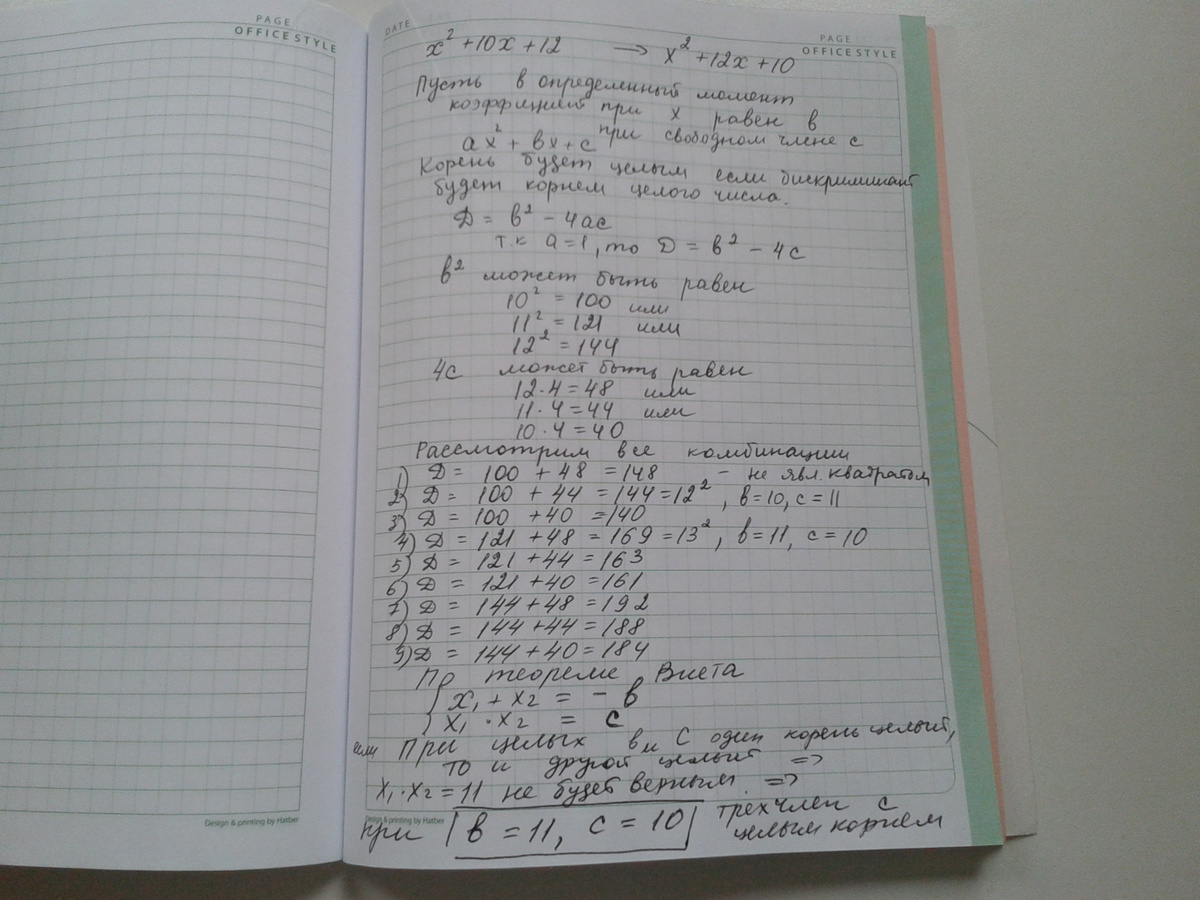 PAGE
OFFICE STYLE
DATE
PAGE
OFFICE STYLE
x² + 10x + 12 → x² + 12x + 10
Пусть в определенный момент
коэффициент при x равен в
ax² + вx + c при свободном члене c
Корень будет целым если дискриминант
будет корнем целого числа.
Д = в² - 4ac
т.к a = 1, то Д = в² - 4c
в² может быть равен
10² = 100 или
11² = 121 или
12² = 144
4c может быть равен
12·4 = 48 или
11·4 = 44 или
10·4 = 40
Рассмотрим все комбинации
1) Д = 100 + 48 = 148 - не явл. квадратом
2) Д = 100 + 44 = 144 = 12², в = 10, c = 11
3) Д = 100 + 40 = 140
4) Д = 121 + 48 = 169 = 13², в = 11, c = 10
5) Д = 121 + 44 = 163
6) Д = 121 + 40 = 161
7) Д = 144 + 48 = 192
8) Д = 144 + 44 = 188
9) Д = 144 + 40 = 184
По теореме Виета
{ x₁ + x₂ = - в
x₁ · x₂ = c
если При целых в и C один корень целый,
то и другой целый =>
x₁·x₂ = 11 не будет верным =>
при в = 11, c = 10 трехчлен с
целым корнем
Design & printing by Hatber
Design & printing by Hatber